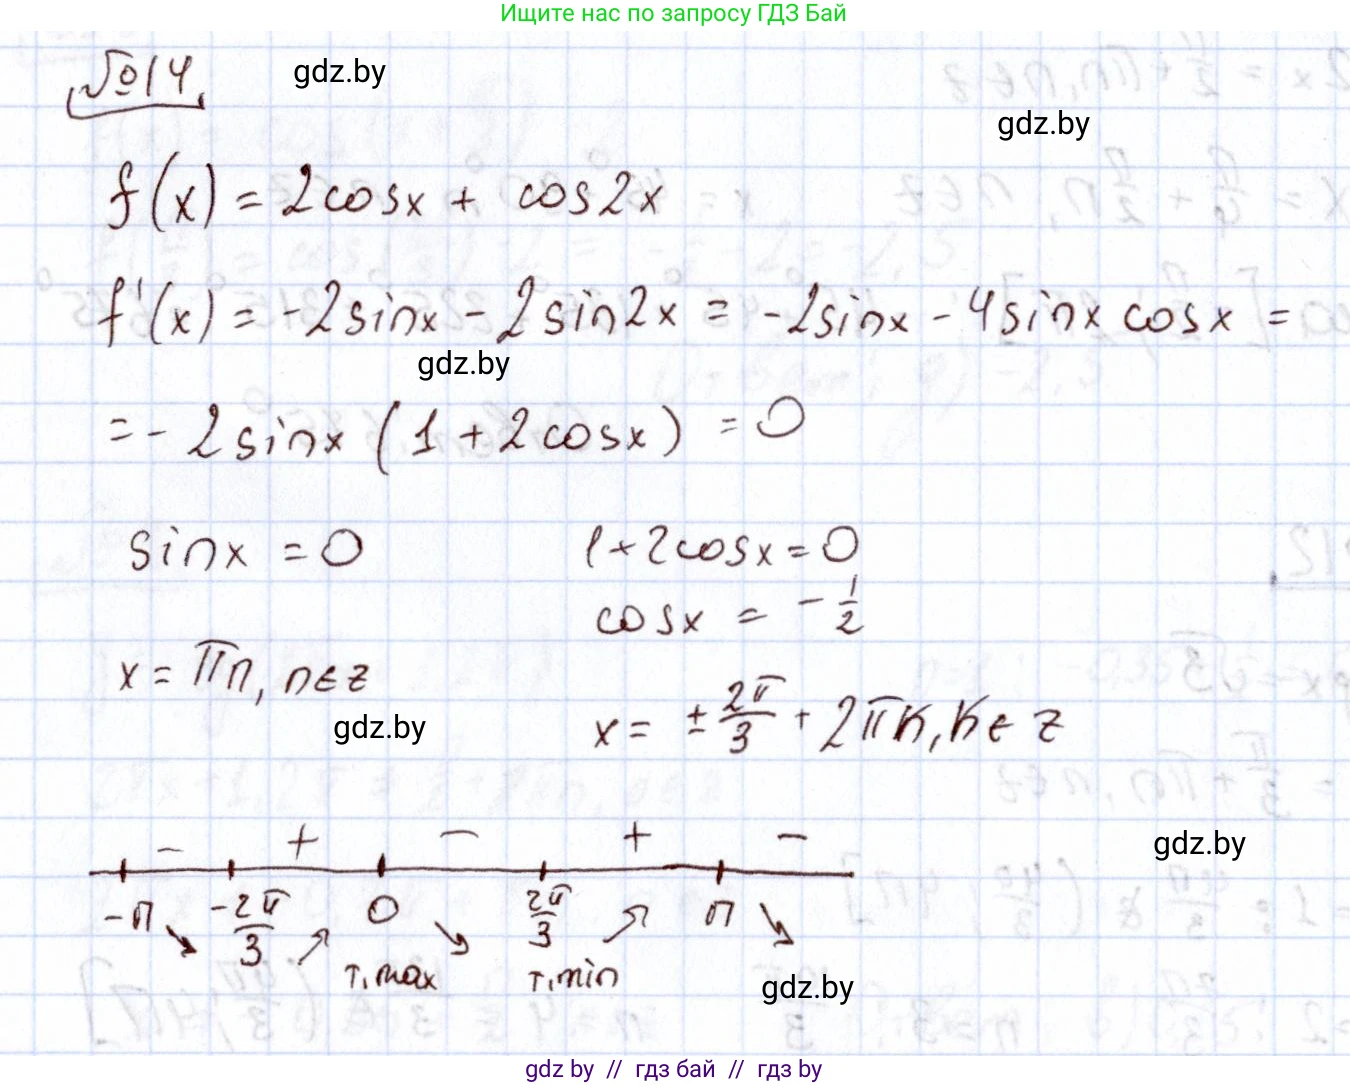 Ищите нас по запросу ГДЗ Бай
№14.
gdz.by
gdz.by
f(x) = 2cosx + cos2x
f'(x) = -2sinx - 2sin2x = -2sinx - 4sinx cosx =
gdz.by
= - 2sinx (1 + 2cosx) = 0
sinx = 0
1 + 2cosx = 0
cosx = - 1/2
x = πn, n∈z
x = ± 2π/3 + 2πk, k∈z
gdz.by
- + - + -
gdz.by
-π -2π/3 0 2π/3 π
т.max т.min
gdz.by
gdz by // гдз бай // гдз by